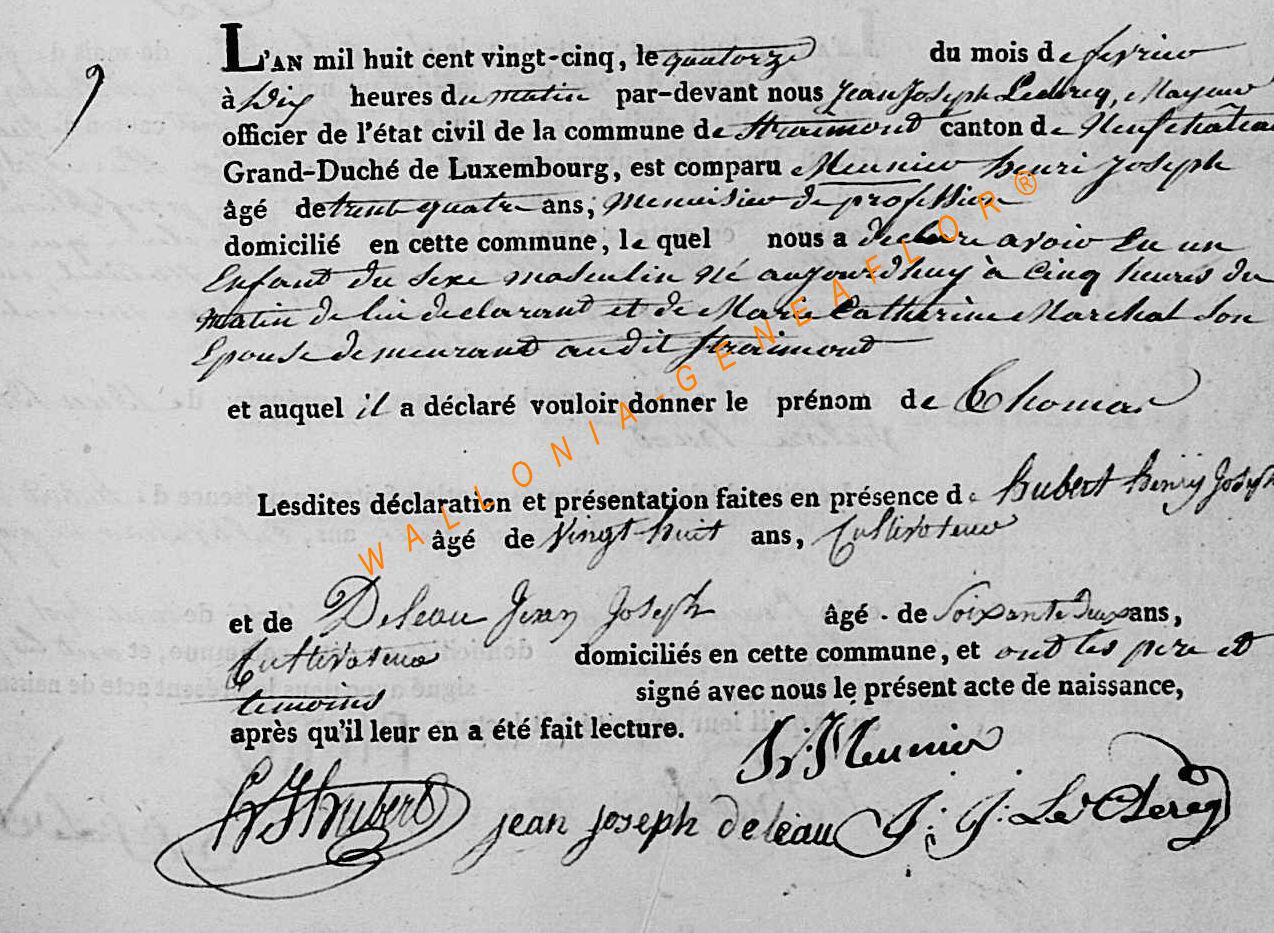 9
L'AN mil huit cent vingt-cinq, le quatorze du mois de fevrier
à Dix heures du matin par-devant nous Jean Joseph Leclercq, Mayeur
officier de l'état civil de la commune de Straimont canton de Neufchateau
Grand-Duché de Luxembourg, est comparu Meunier henri Joseph
âgé de trente quatre ans, menuisier de profession
domicilié en cette commune, le quel nous a declare avoir Eu un
Enfant du sexe masculin né aujourdhuy à cinq heures du
matin de lui declarant et de Marie Catherine Marchal son
Epouse demeurant audit straimont
et auquel il a déclaré vouloir donner le prénom de Thomas
Lesdites déclaration et présentation faites en présence de hubert henry Joseph
âgé de vingt-huit ans, Cultivateur
et de Deleau Jean Joseph âgé de Soixante deux ans,
Cultivateur domiciliés en cette commune, et ont les pere et
temoins signé avec nous le présent acte de naissance,
après qu'il leur en a été fait lecture.
h: J Meunier
h J hubert jean joseph deleau J: J: Le Clercq
WALLONIA-GENEAFLOR®